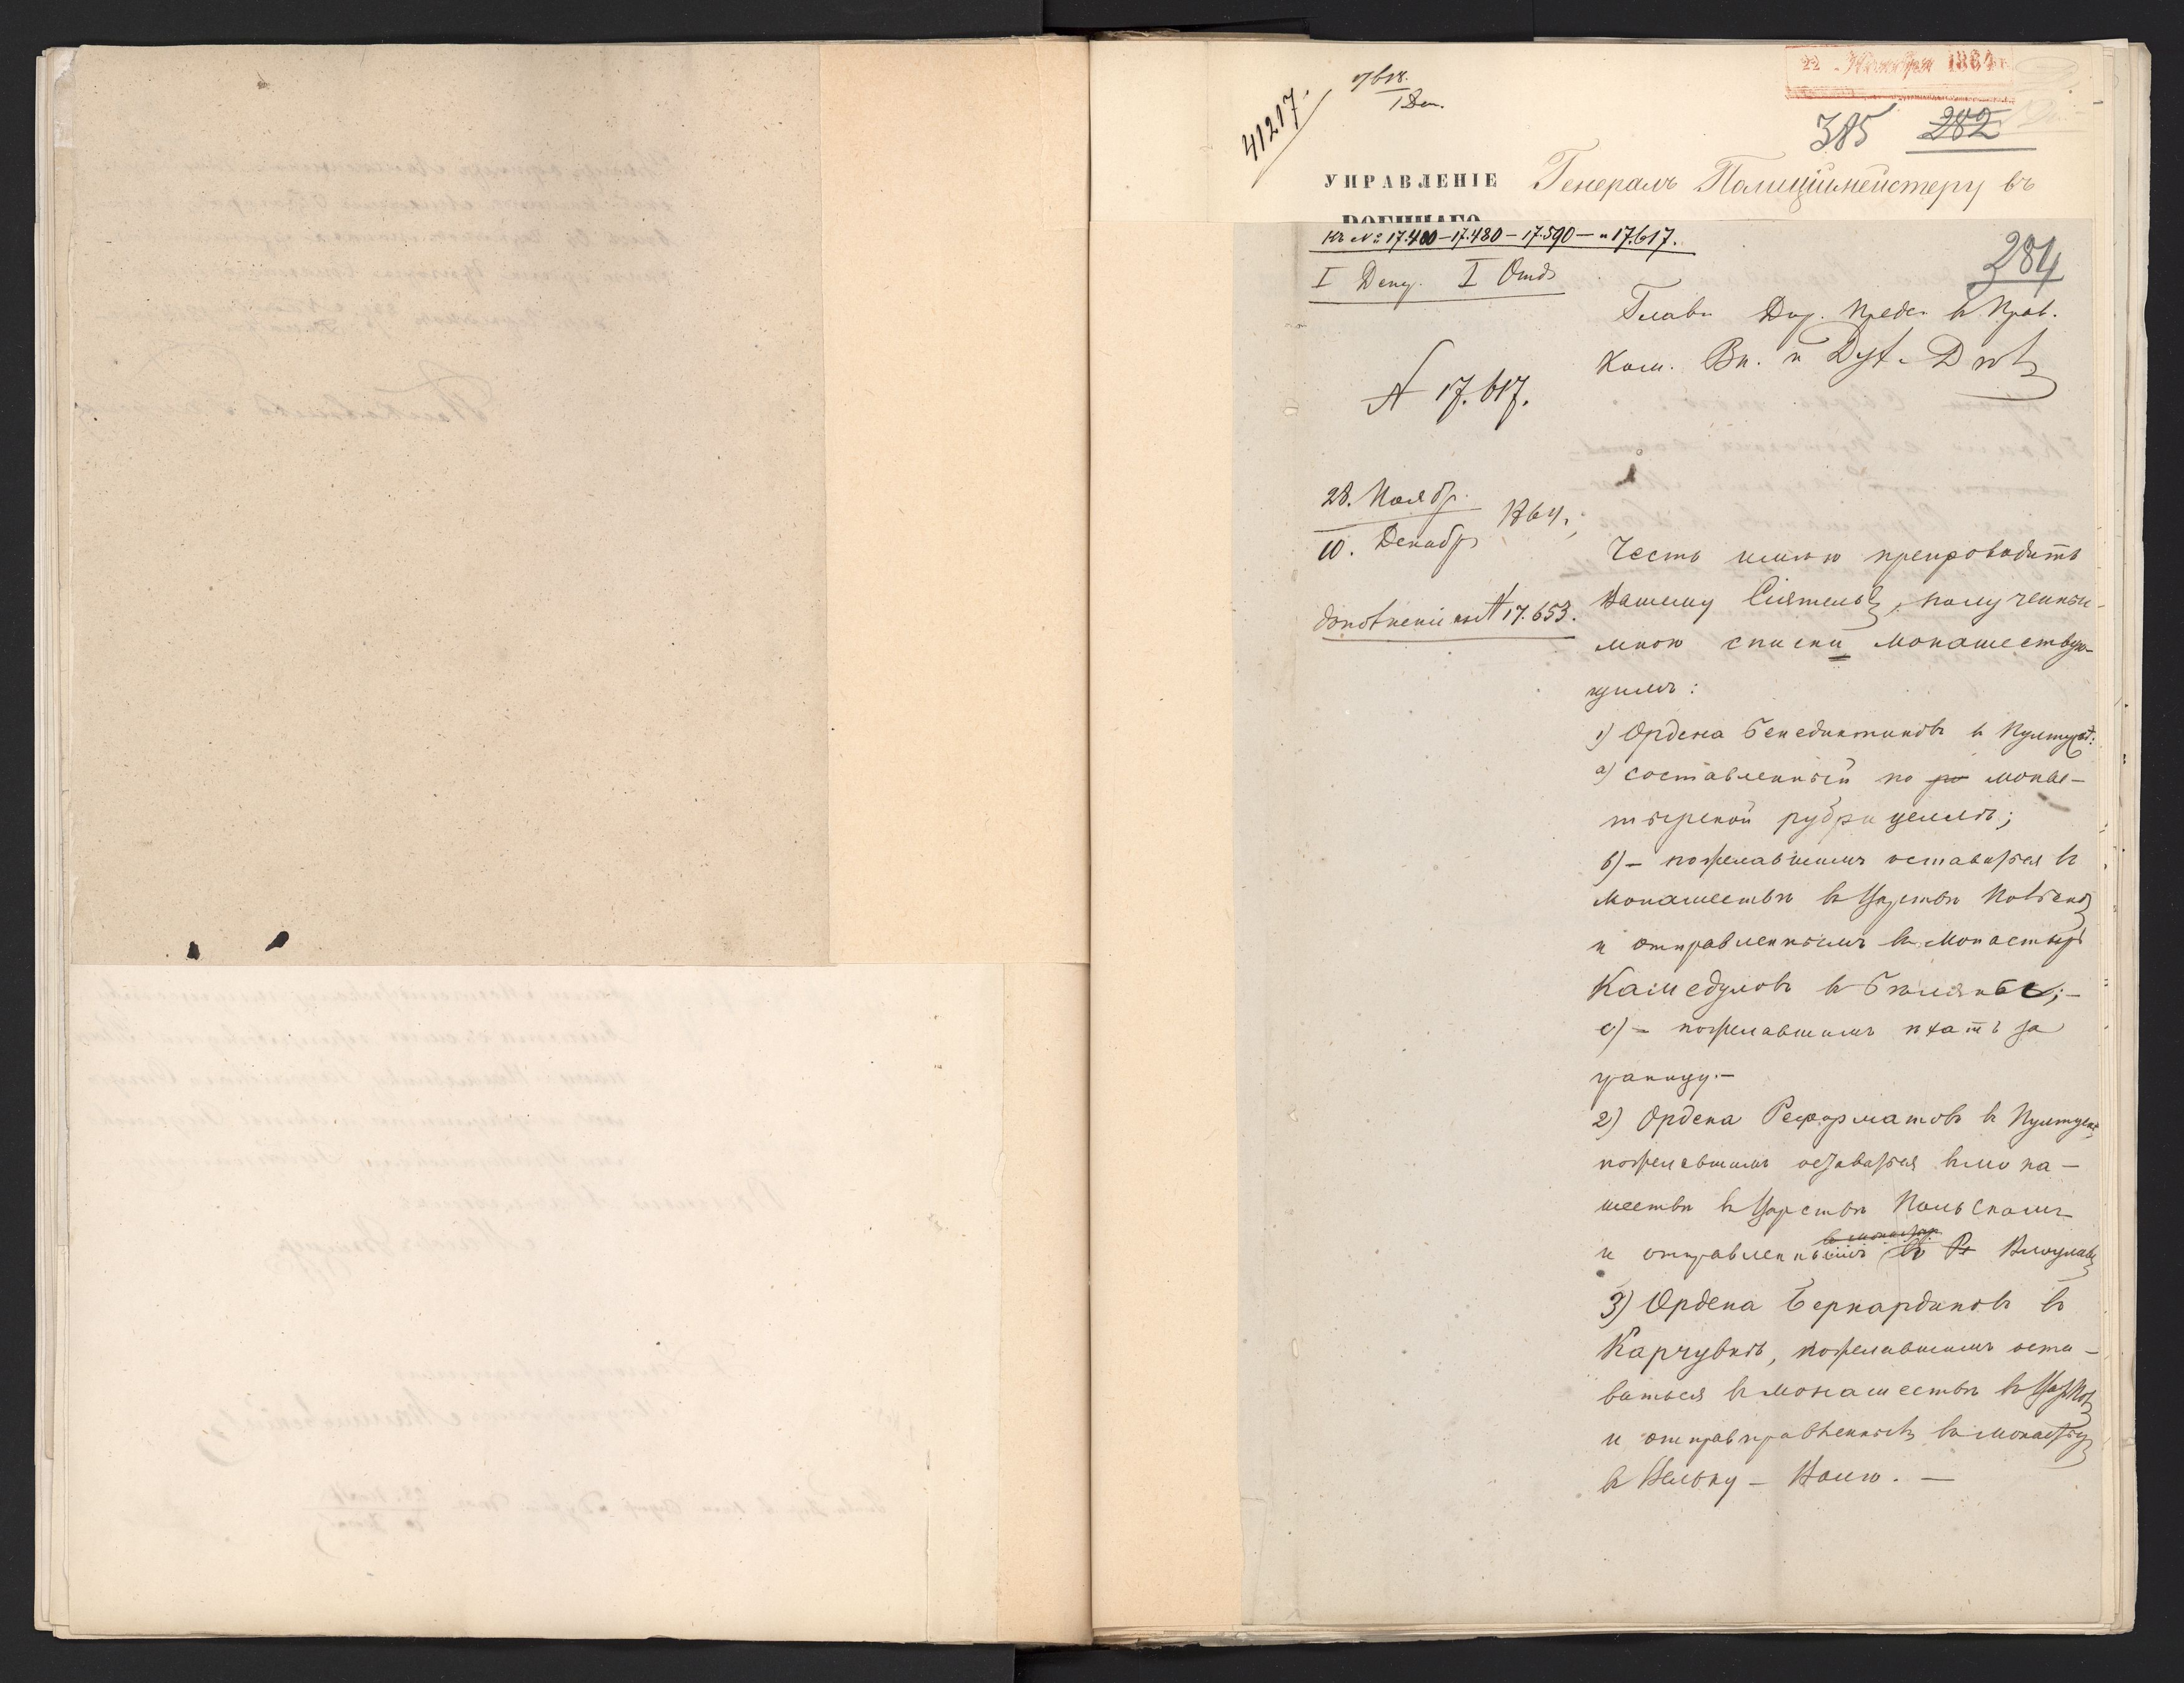 22 Ноября 1864
41217.
385 282
УПРАВЛЕНІЕ
Генералъ Полицiймейстеру въ
ВОЕННАГО
Къ №: 17.400 – 17.480 – 17.590 – и 17.617.
I Деп. I Отд.
284
Главн. Дир. Предс. в Прав.
Ком. Вн. и Дух. Дѣлъ
№ 17.617.
28. Ноябр.
10. Декабр. 1864.
Честь имѣю препроводить
№ 17.653.
Вашему Сіятельс, полученные
мною списки монашествую-
щимъ:
1) Ордена Бенедиктиновъ в Пултускѣ:
а) составленный по монас-
тырской рубрицеллѣ;
b) – пожелавшимъ оставаться в
монашествѣ в Царствѣ Польском
и отправленнымъ в монастырь
Камедуловъ в Бѣлянбе; –
с) – пожелавшимъ ѣхать за
границу. –
2) Ордена Реформатовъ в Пултускѣ,
пожелавшимъ оставаться в мона-
шествѣ в Царствѣ Польскомъ
в монастыр
и отправленнымъ въ
3) Ордена Бернардиновъ въ
Карчувкѣ, пожелавшимъ оста-
ваться в монашествѣ в Цар. Пол
и отправправленныхъ в монастырь
в Вельку – Волю. –